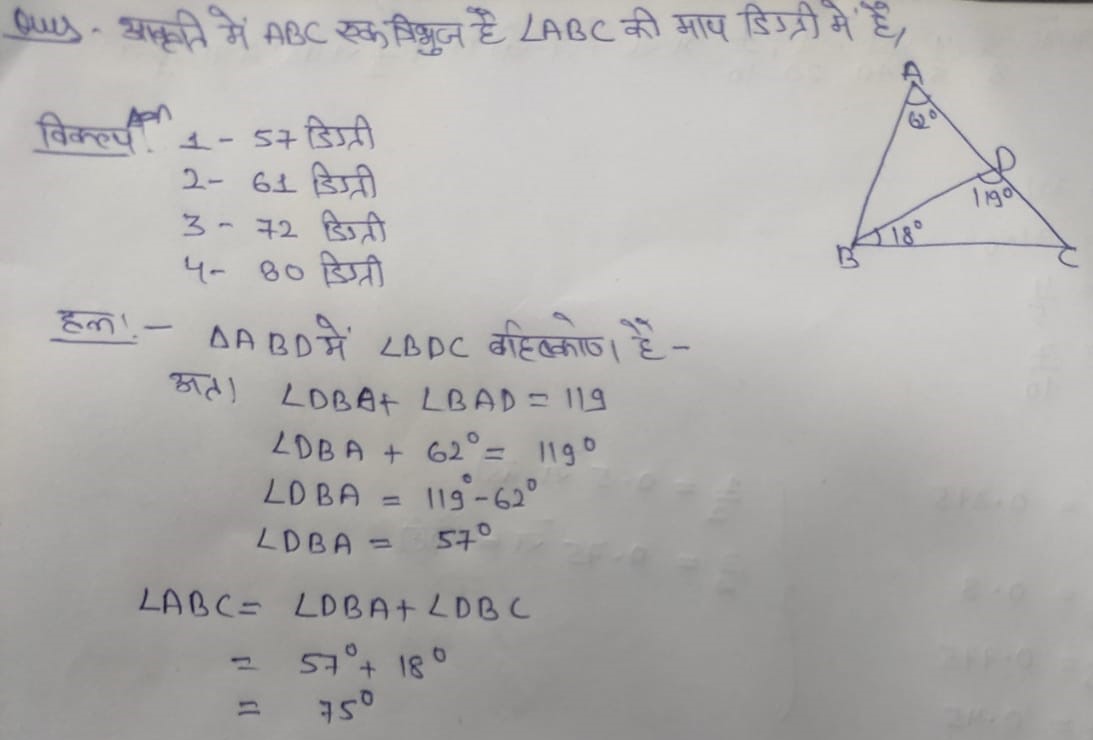 Ques. आकृति में ABC एक त्रिभुज है ∠ABC की माप डिग्री में है,
A
62°
D
119°
B
18°
C
विकल्प :
1 - 57 डिग्री
2- 61 डिग्री
3 - 72 डिग्री
4- 80 डिग्री
हल :-
ΔABD में ∠BDC बहिष्कोण है -
अतः ∠DBA + ∠BAD = 119
∠DBA + 62° = 119°
∠DBA = 119° - 62°
∠DBA = 57°
∠ABC = ∠DBA + ∠DBC
= 57° + 18°
= 75°